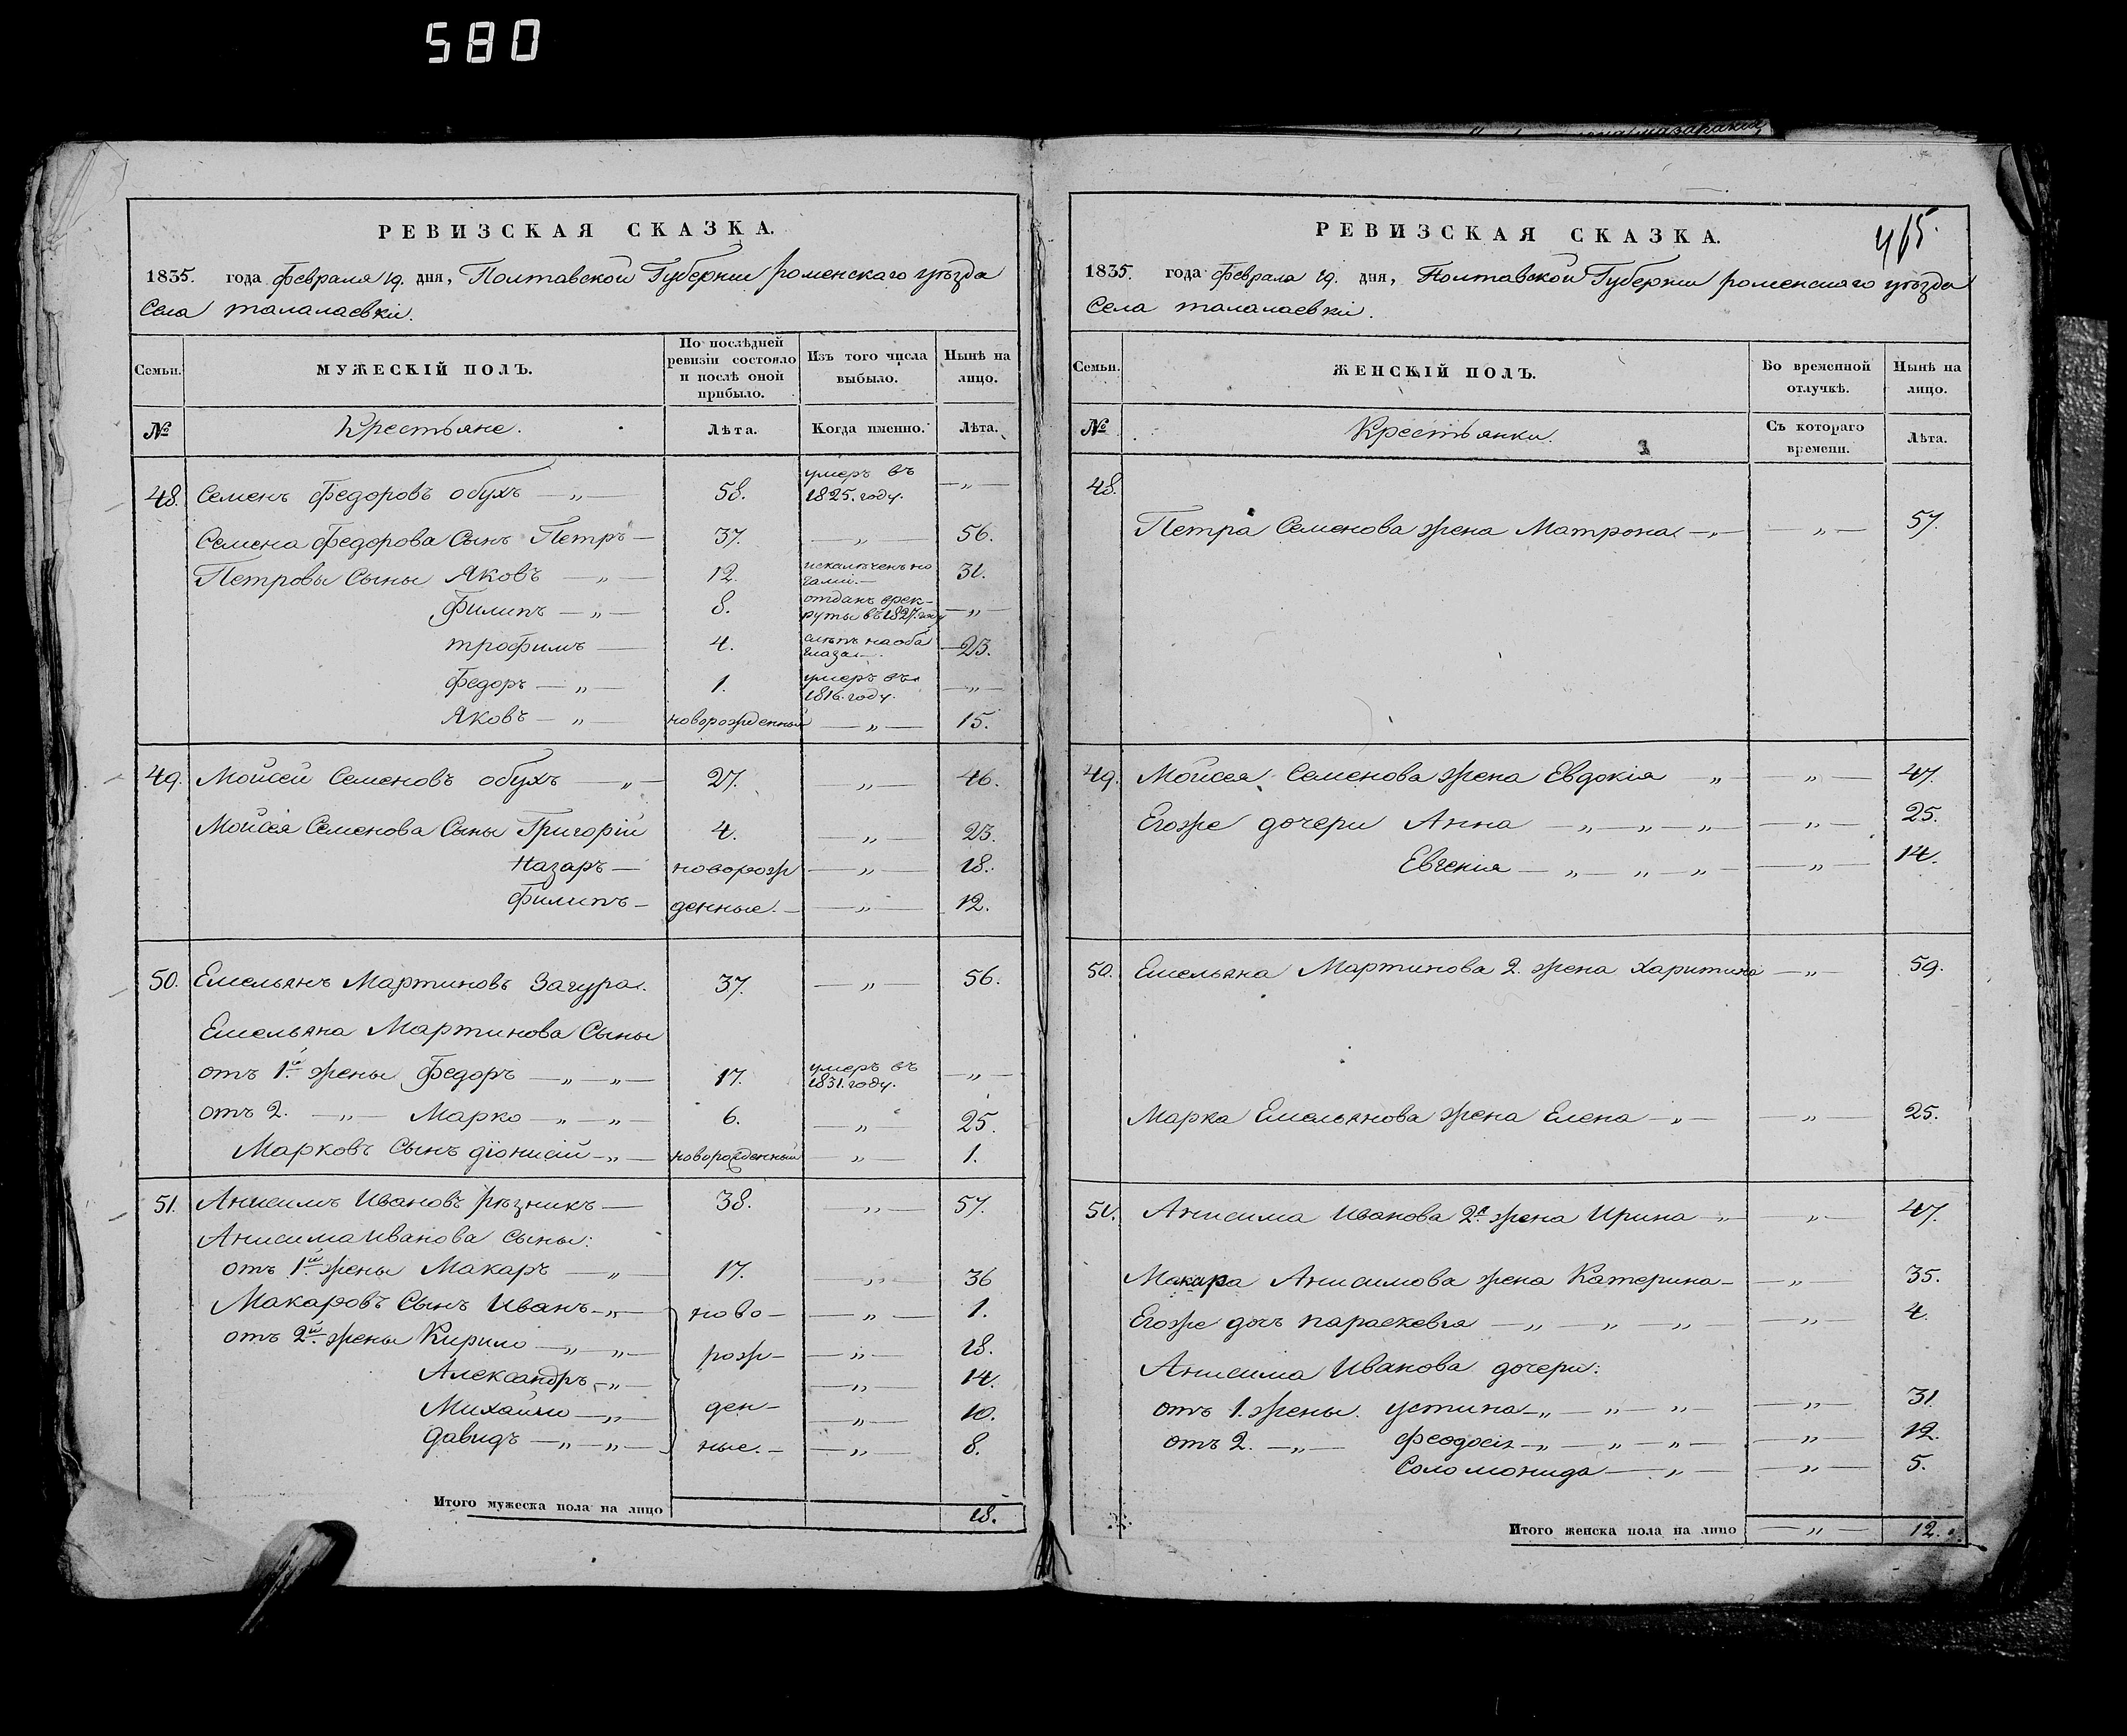 580
РЕВИЗСКАЯ СКАЗКА.
1835. года февраля 19. дня, Полтавской Губернии роменскаго уѣзда
Села талалаевки.
Семьи. МУЖЕСКІЙ ПОЛЪ. По послѣдней ревизіи состояло и послѣ оной прибыло. Изъ того числа выбыло. Нынѣ на лицо.
№ Крестьяне. Лѣта. Когда именно. Лѣта.
48. Семенъ Федоровъ обухъ — „ — 58. умеръ въ 1825. году. — „ —
Семена Федорова Сынъ Петръ — 37. — „ — 56.
Петровы Сыны Яковъ — „ — 12. искалѣченъ ногами. — 31.
Филипъ — „ — 8. отданъ врекруты въ 1827. году — „ —
трофимъ — 4. слѣпъ на оба глаза. — 23.
Федоръ — „ — 1. умеръ въ 1816. году. — „ —
Яковъ — „ — новорожденный — „ — 15.
49. Мойсей Семеновъ обухъ — „ — 27. — „ — 46.
Мойсея Семенова Сыны Григорій 4. — „ — 23.
Назаръ — новорож — „ — 18.
Филипъ — денные. — — „ — 12.
50. Емельянъ Мартиновъ Загура. 37. — „ — 56.
Емельяна Мартинова Сыны
отъ 1й жены Федоръ — „ — „ — 17. умеръ въ 1831. году. — „ —
отъ 2. — „ — Марко — „ — „ — 6. — „ — 25.
Марковъ Сынъ діонисій — „ — новорожденный — „ — 1.
51. Анисимъ Ивановъ рѣзникъ — 38. — „ — 57.
Анисима Иванова Сыны:
отъ 1й жены Макаръ — „ — 17. — „ — 36
Макаровъ Сынъ Иванъ — „ — ново — — „ — 1.
отъ 2й жены Кирило — „ — „ — рож — — „ — 18.
Александръ — „ — — „ — 14.
Михайло — „ — ден — — „ — 10.
давидъ — „ — „ — ные. — — „ — 8.
Итого мужеска пола на лицо 18.
465.
РЕВИЗСКАЯ СКАЗКА.
1835. года февраля 19. дня, Полтавской Губернии роменскаго уѣзда
Села талалаевки.
Семьи. ЖЕНСКІЙ ПОЛЪ. Во временной отлучкѣ. Нынѣ на лицо.
№ Крестьянки. Съ котораго времени. Лѣта.
48.
Петра Семенова жена Матрона — „ — — „ — 57.
49. Мойсея Семенова жена Евдокія „ — „ — 47.
Егоже дочери Анна — „ — „ — „ — — „ — 25.
Евгенія — „ — „ — „ — — „ — 14.
50. Емельяна Мартинова 2. жена Харитина — „ — 59.
Марка Емельянова жена Елена — „ — — „ — 25.
51. Анисима Иванова 2я жена Ирина — „ — „ — 47.
Макара Анисимова жена Катерина — — „ — 35.
Егоже дочь параскевія — „ — „ — „ — — „ — 4.
Анисима Иванова дочери:
отъ 1. жены. устина — „ — „ — „ — — „ — 31
отъ 2. — „ — феодосія — „ — „ — „ — — „ — 12.
Соломонида — „ — — „ — 5.
Итого женска пола на лицо — „ — 12.